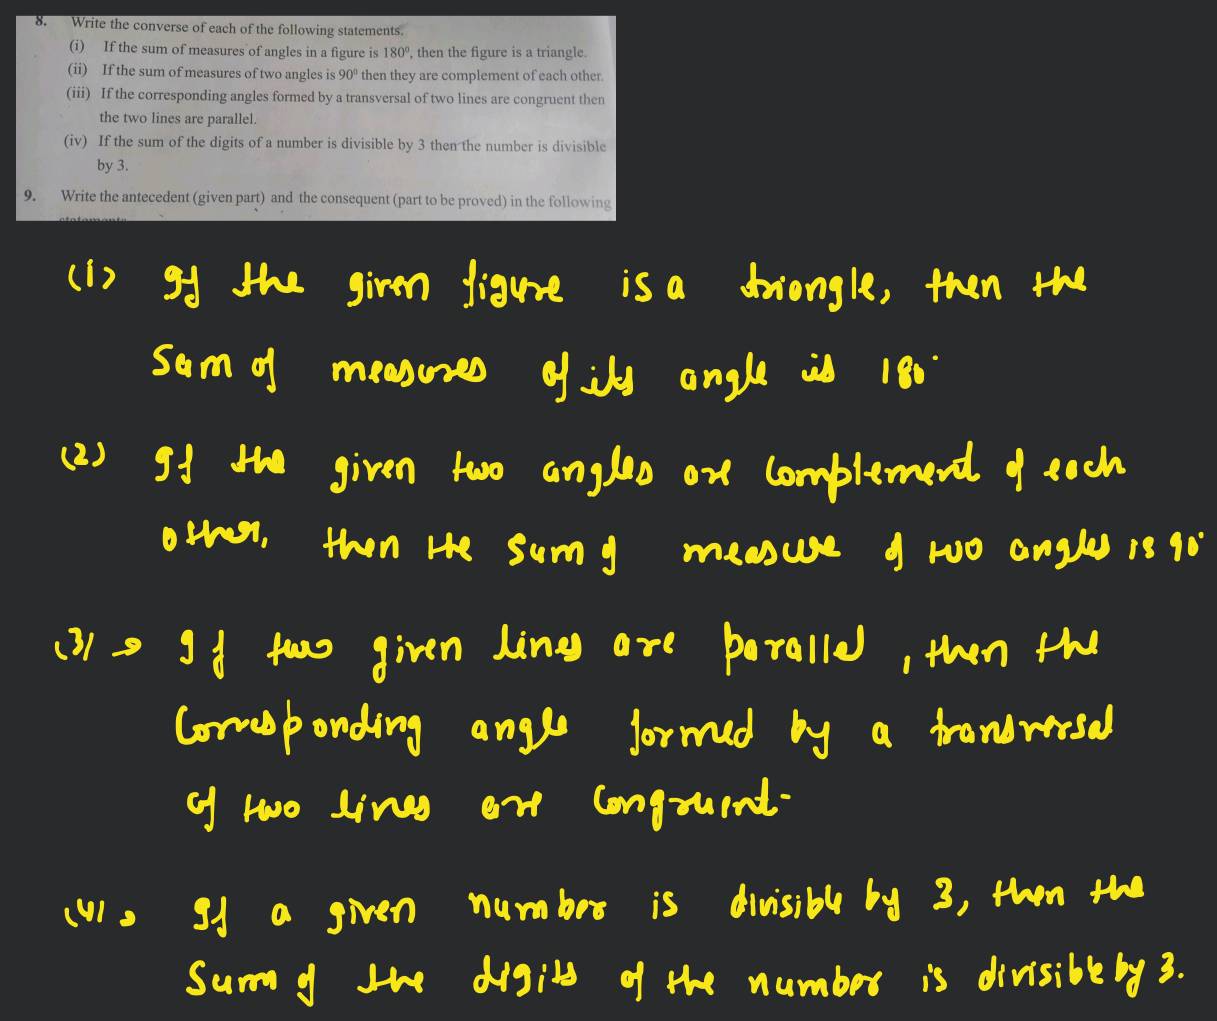 8. Write the converse of each of the following statements.
(i) If the sum of measures of angles in a figure is 180⁰, then the figure is a triangle.
(ii) If the sum of measures of two angles is 90⁰ then they are complement of each other.
(iii) If the corresponding angles formed by a transversal of two lines are congruent then
the two lines are parallel.
(iv) If the sum of the digits of a number is divisible by 3 then the number is divisible
by 3.
9. Write the antecedent (given part) and the consequent (part to be proved) in the following
statements.
(1) If the given figure is a triangle, then the
Sum of measures of its angle is 180°
(2) If the given two angles are complement of each
other, then the sum of measure of two angles is 90°
(3) → If two given lines are parallel, then the
Corresponding angle formed by a transversal
of two lines are congruent.
(4) → If a given number is divisible by 3, then the
Sum of the digits of the number is divisible by 3.